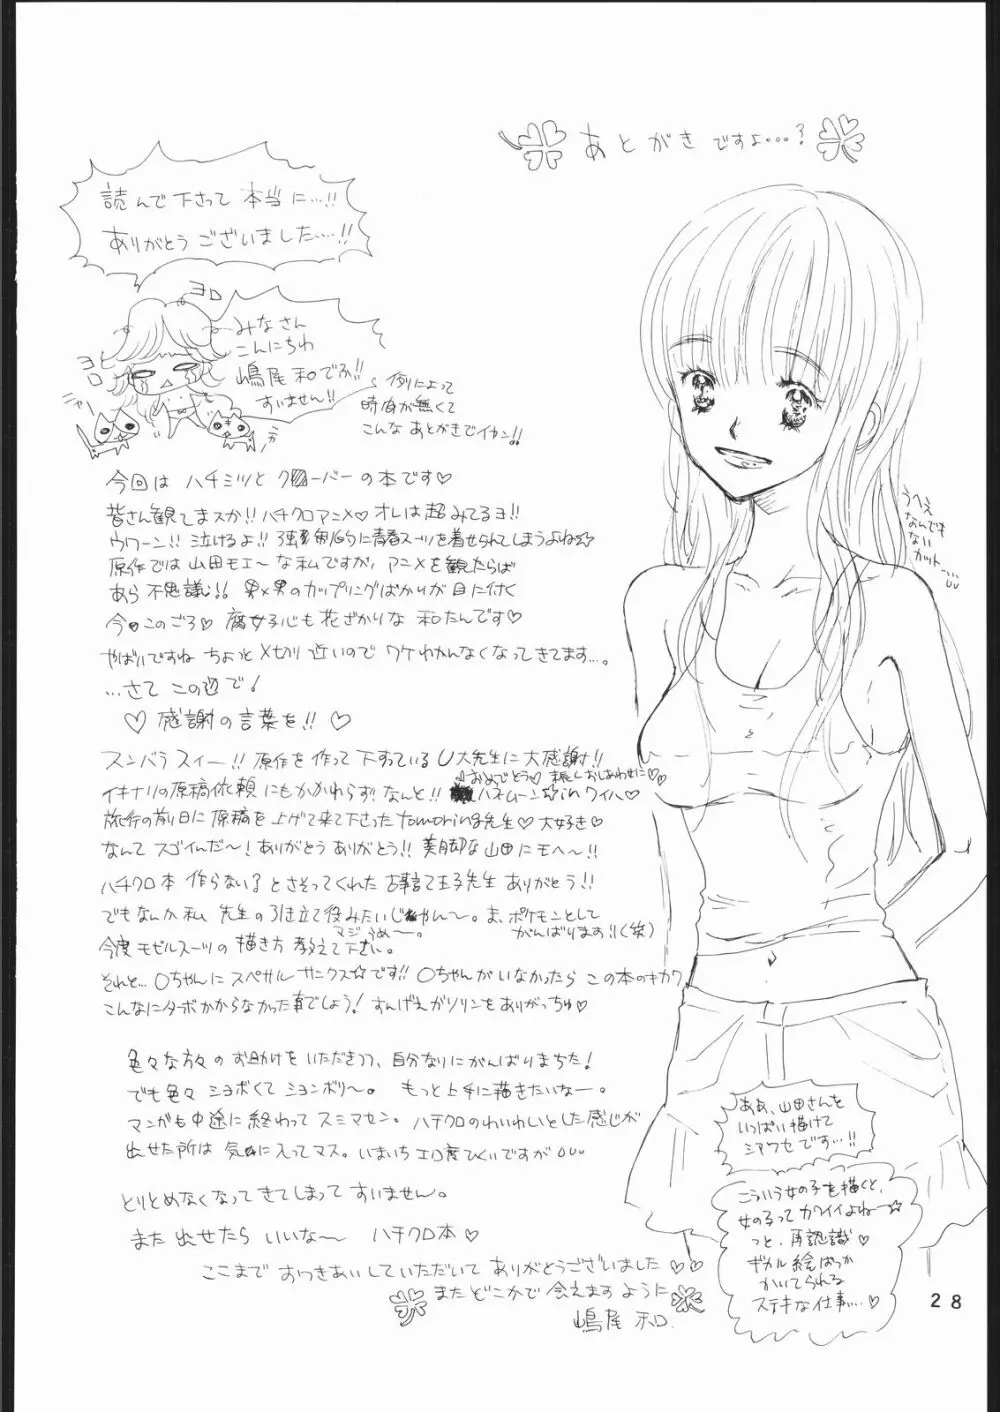 あとがきですよ…?
読んで下さって本当に…!!
ありがとうございました…!!
ヨロ
ヨロ
ニャー
みなさん
こんにちわ
嶋尾和でふ!!
すいません!!
例によって
時間が無くて
こんなあとがきでイカン!!
今回はハチミツとクローバーの本です♡
皆さん観てまスか!!ハチクロアニメ♡オレは超みてるヨ!!
ウワーン!!泣けるよ!!強制的に青春スーツを着せられてしまうよね☆
原作では山田モエ〜な私ですが、アニメを観たらば
あら不思議!!男×男のカップリングばかりが目に付く
今日このごろ♡腐女子心も花ざかりな和たんです♡
やばいですねちょっと〆切り近いのでワケわかんなくなってきてます…。
…さてこの辺で!
♡感謝の言葉を!!♡
スンバラスィー!!原作を作って下すっているU大先生に大感謝!!
おめでとう♡末長くおしあわせに♡♡
イキナリの原稿依頼にもかかわらず!なんと!!ハネムーン☆inハワイ♡
旅行の前日に原稿を上げて来て下さったtomoring先生♡大好き♡
なんてスゴイんだ〜!ありがとうありがとう!!美脚な山田にモヘ〜!!
ハチクロ本作らない?とさそってくれた古事言て王子先生ありがとう!!
でもなんか私先生の引き立て役みたいじゃん〜。ま、ポケモンとして
マジうめ〜。
がんばります!!(笑)
今度モビルスーツの描き方教えて下さい。
それと…〇ちゃんにスペサルサンクス☆です!!〇ちゃんがいなかったらこの本のキカク
こんなにターボかからなかった事でしょう!すんげえガソリンをありがっちゅ♡
色々な方々のお助けをいただきつつ、自分なりにがんばりまちた!
でも色々ショボくてションボリ〜。もっと上手に描きたいなー。
マンガも中途に終わってスミマセン。ハチクロのわいわいとした感じが
出せた所は気に入ってマス。いまいちエロ度ひくいですがUUU
とりとめなくなってきてしまってすいません。
また出せたらいいな〜ハチクロ本♡
ここまでおつきあいしていただいてありがとうございました♡♡
またどこかで会えますように
嶋尾和.
うへえ
なんでも
ない
カット…UU
ああ、山田さんを
いっぱい描けて
シアワセです…!!
こういう女の子を描くと、
女の子ってカワイイよねー☆
っと、再認識♡
ギカル絵ばっか
かいてられる
ステキな仕事…♡
28